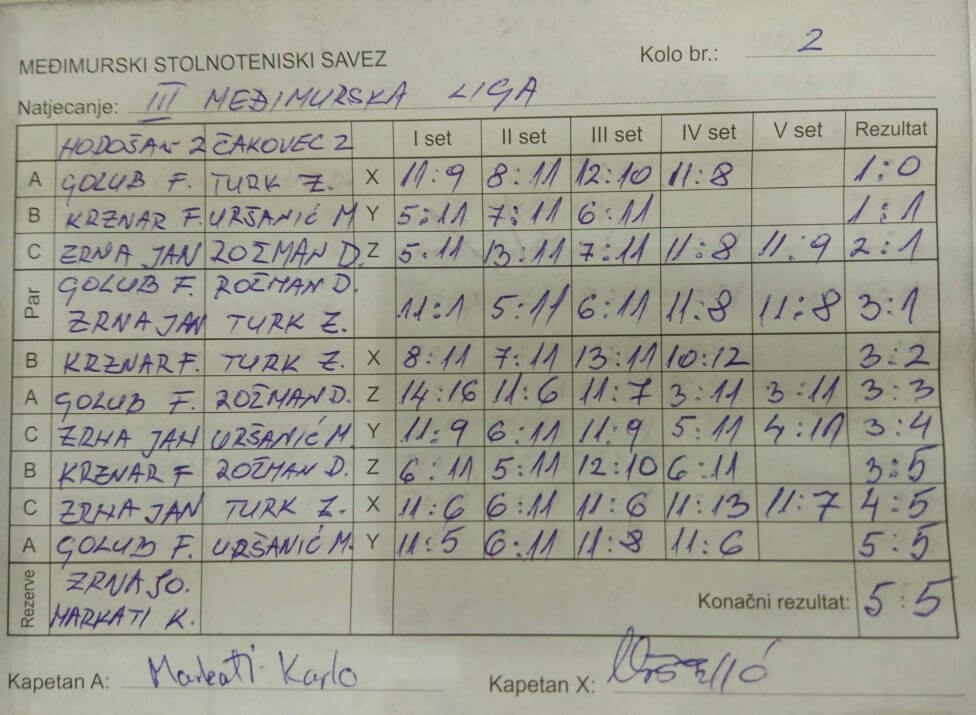 MEĐIMURSKI STOLNOTENISKI SAVEZ Kolo br.: 2
Natjecanje: III MEĐIMURSKA LIGA
HODOŠAN 2 ČAKOVEC 2 I set II set III set IV set V set Rezultat
A GOLUB F. TURK Z. X 11:9 8:11 12:10 11:8 1:0
B KRZNAR F. URŠANIĆ M Y 5:11 7:11 6:11 1:1
C ZRNA JAN ROŽMAN D. Z 5:11 13:11 7:11 11:8 11:9 2:1
Par GOLUB F. ROŽMAN D.
ZRNA JAN TURK Z. 11:1 5:11 6:11 11:8 11:8 3:1
B KRZNAR F. TURK Z. X 8:11 7:11 13:11 10:12 3:2
A GOLUB F. ROŽMAN D. Z 14:16 11:6 11:7 3:11 3:11 3:3
C ZRNA JAN URŠANIĆ M. Y 11:9 6:11 11:9 5:11 4:11 3:4
B KRZNAR F ROŽMAN D. Z 6:11 5:11 12:10 6:11 3:5
C ZRNA JAN TURK Z. X 11:6 6:11 11:6 11:13 11:7 4:5
A GOLUB F. URŠANIĆ M. Y 11:5 6:11 11:8 11:6 5:5
Rezerve ZRNA JO.
MARKATI K. Konačni rezultat: 5:5
Kapetan A: Markati Karlo Kapetan X: